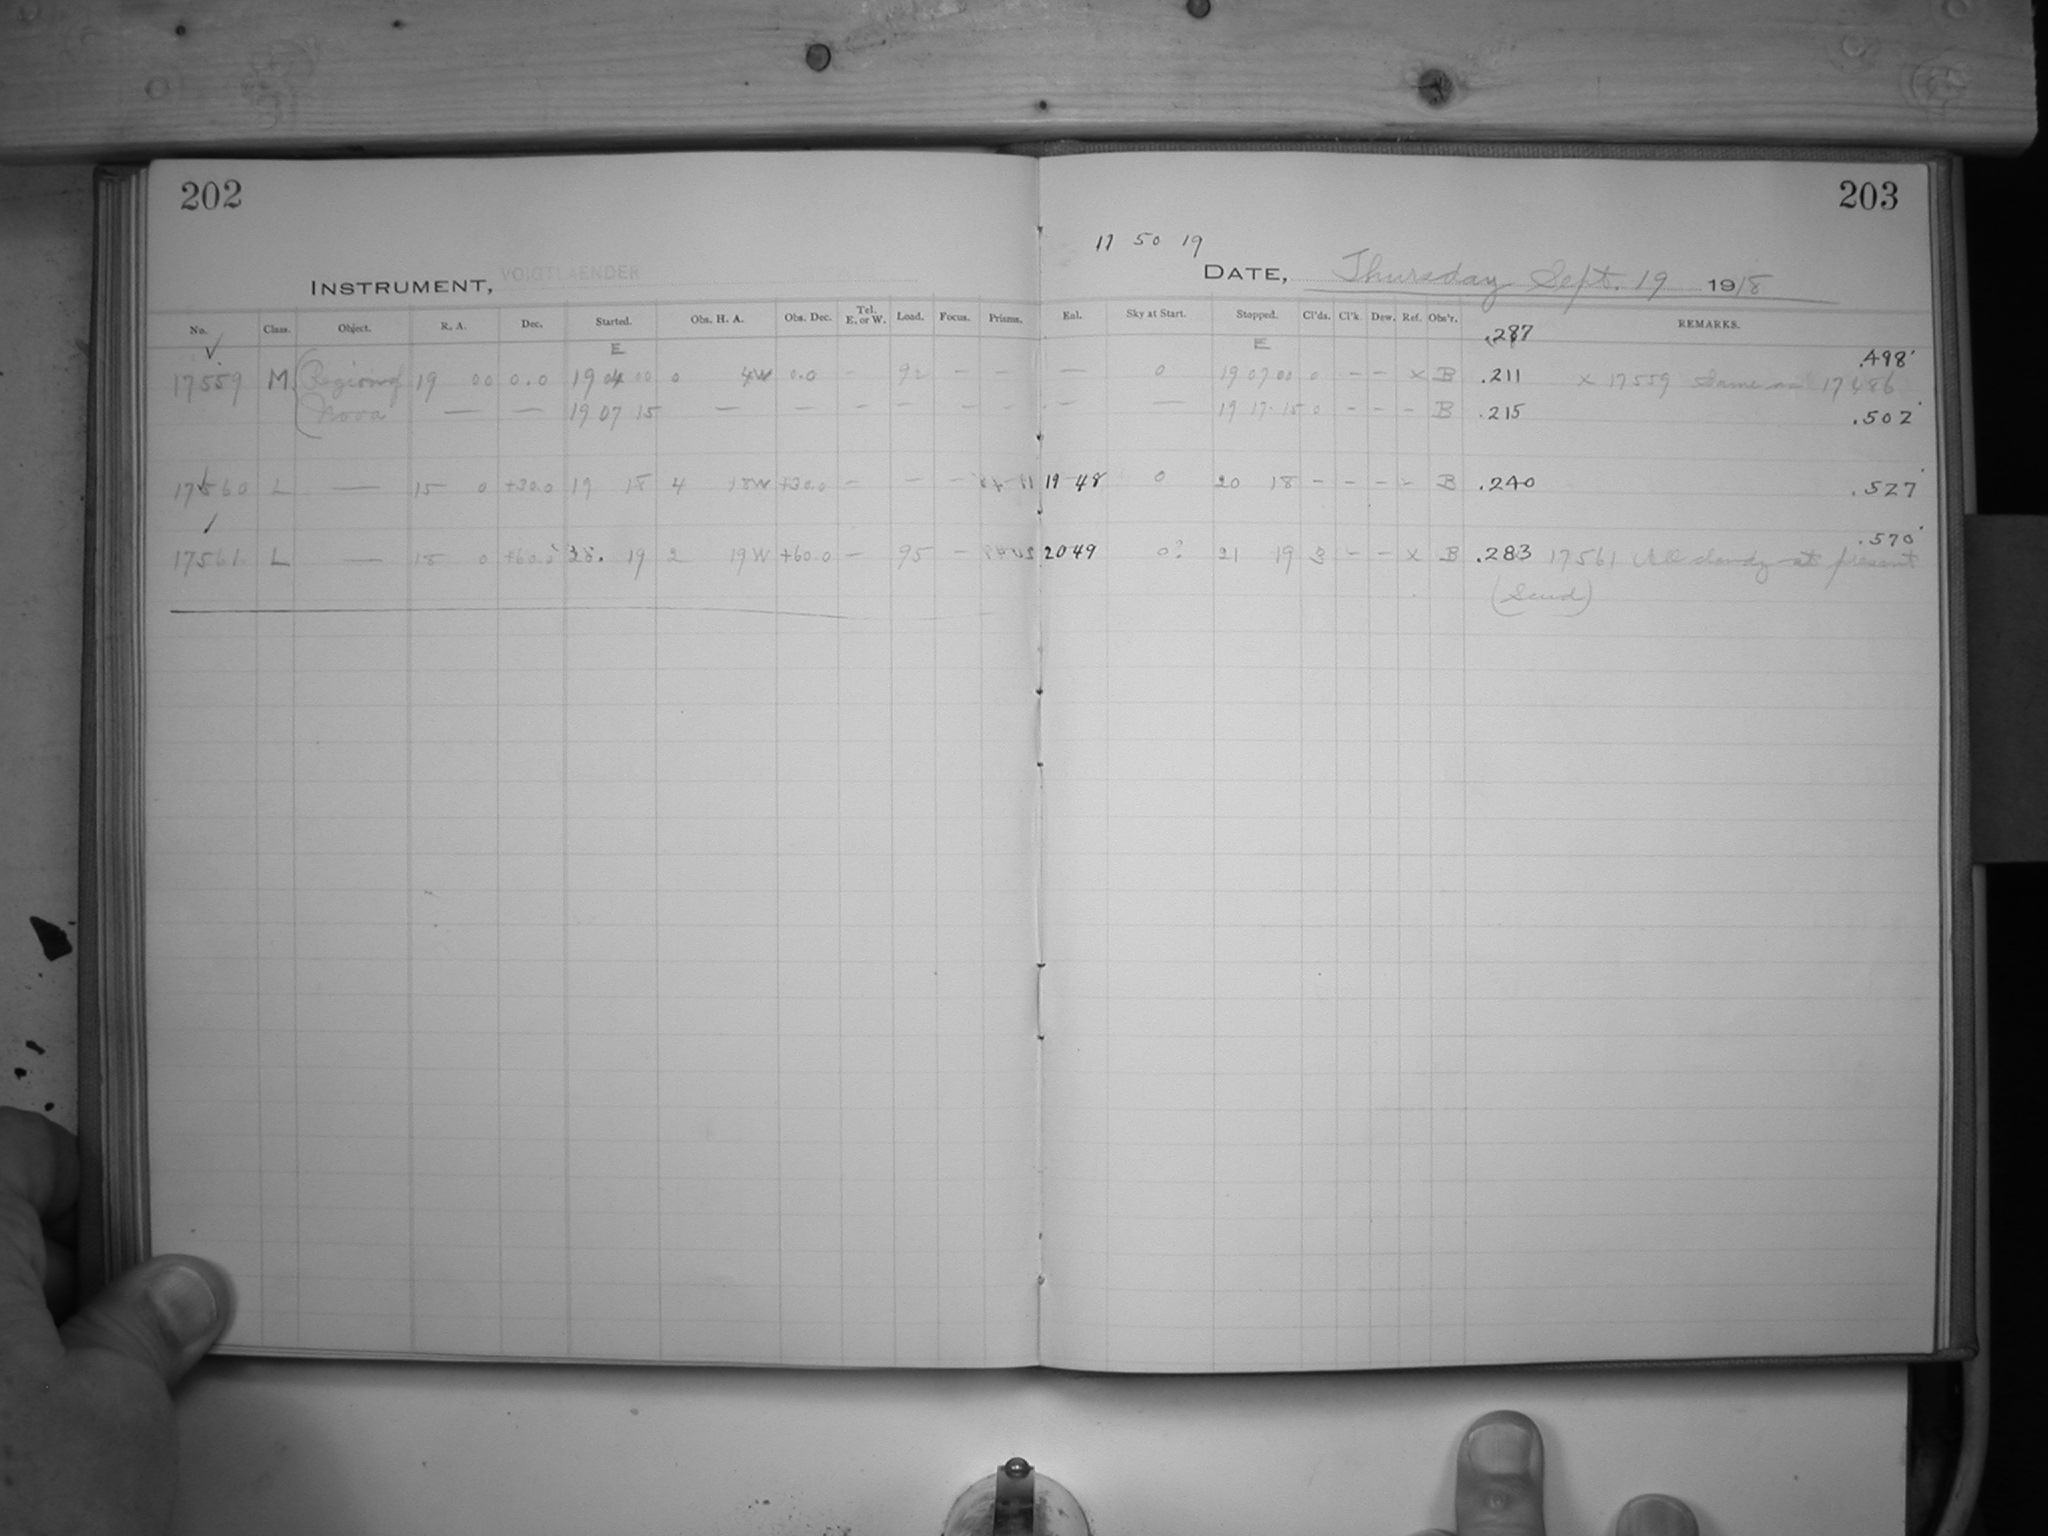 202
203
17 50 19
INSTRUMENT, VOIGTLAENDER
DATE, Thursday Sept. 19 1918
No. Class. Object. R. A. Dec. Started. Obs. H. A. Obs. Dec. Tel. E. or W. Load. Focus. Prisms. Eal. Sky at Start. Stopped. Cl'ds. Cl'k. Dew. Ref. Obs'r. REMARKS.
.287
E E
.498
17559 M Region of 19 00 0.0 19 04 00 0 4W 0.0 - 92 - - — 0 19 07 00 0 - - x B .211 x 17559 Same as 17486
Nova — — 19 07 15 — — - - - - - — 19 17 15 0 - - - B .215 .502
17560 L — 15 0 +30.0 19 18 4 18W +30.0 - - - 19 48 0 20 18 - - - - B .240 .527
.570
17561 L — 18 0 +60.0 20. 19 2 19W +60.0 - 95 - 20 49 0? 21 19 3 - - x B .283 17561 All cloudy at present
(Seud)